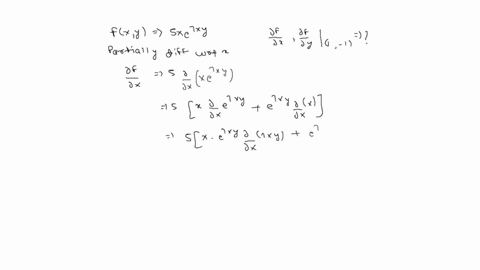 f(x,y) ⇒ 5xe^{7xy}
∂f/∂x , ∂f/∂y |(1,-1) ⇒ ?
Partially diff wrt x
∂f/∂x ⇒ 5 ∂/∂x (xe^{7xy})
⇒ 5 [ x ∂/∂x e^{7xy} + e^{7xy} ∂/∂x (x) ]
⇒ 5 [ x · e^{7xy} ∂/∂x (7xy) + e^{7